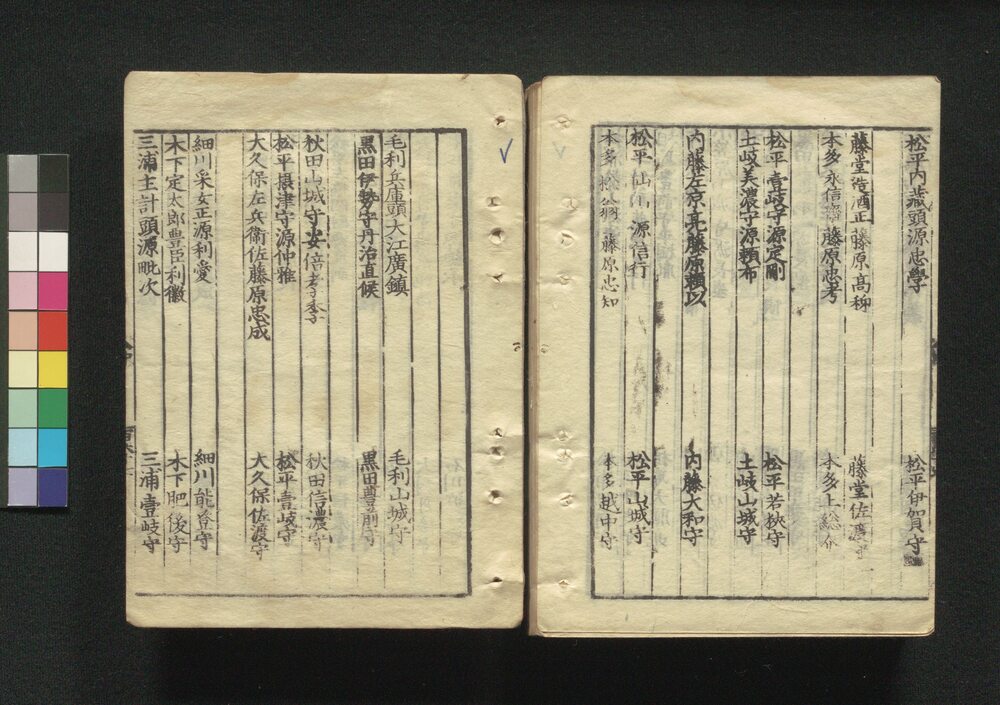 松平内藏頭源忠學　松平伊賀守
藤堂造酒正藤原高　藤堂佐渡守
本多永信　藤原忠考　本多上総介
松平壹岐守源定剛　松平若狹守
土岐美濃守源頼布　土岐山城守
内藤左京亮藤原頼以　内藤大和守
松平仙山源信行　松平山城守
本多松翁藤原忠知　本多越中守
毛利兵庫頭大江廣鎮　毛利山城守
黒田伊勢守丹治直候　黒田豊前守
秋田山城守安倍孝季　秋田信濃守
松平摂津守源仲雅　松平壹岐守
大久保左兵衛佐藤原忠成　大久保佐渡守
細川采女正源利愛　細川能登守
木下定太郎豊臣利徽　木下肥後守
三浦主計頭源毗次　三浦壹岐守